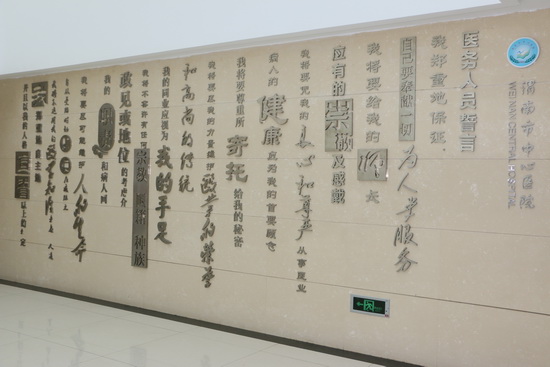 渭南市中心医院
WEINAN CENTRAL HOSPITAL
医务人员誓言
我郑重地保证：
自己要奉献一切为人类服务
我将要给我的师长
应有的崇敬及感戴
我将要凭我的良心和尊严从事医业
病人的健康应为我的首要顾念
我将要尊重所寄托给我的秘密
我将要尽我的力量维护医业的荣誉
和高尚的传统
我的同业应视为我的手足
我将不容许有任何宗教 国籍 种族
政见或地位的考虑介
我的 和病人间
我将要尽可能维护人的生命
自从受胎时起
我郑重地自主地
并且以我的人格宣誓以上的约定